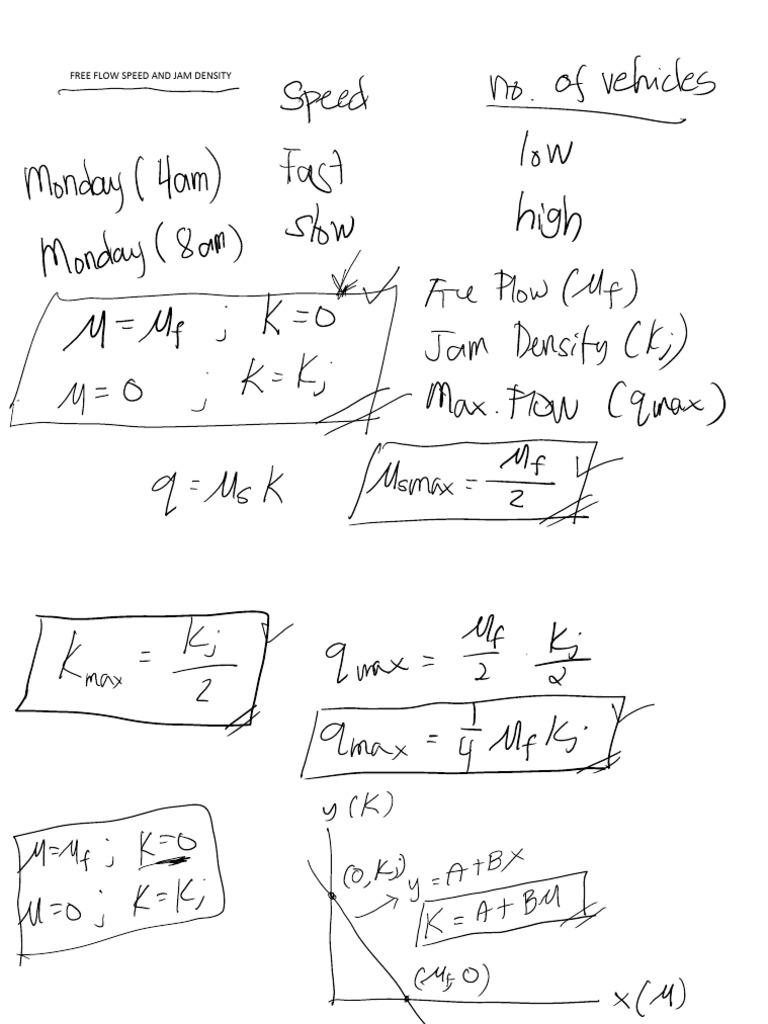 FREE FLOW SPEED AND JAM DENSITY
Speed no. of vehicles
Monday (4am) Fast low
Monday (8am) slow high
μ = μf ; K = 0
μ = 0 ; K = Kj
Free Flow (μf)
Jam Density (Kj)
Max. Flow (qmax)
q = μs K
μsmax = μf / 2
Kmax = Kj / 2
qmax = μf / 2 · Kj / 2
qmax = 1/4 μf Kj
μ = μf ; K = 0
μ = 0 ; K = Kj
y (K)
(0, Kj)
y = A + BX
K = A + Bμ
(μf, 0)
x (μ)